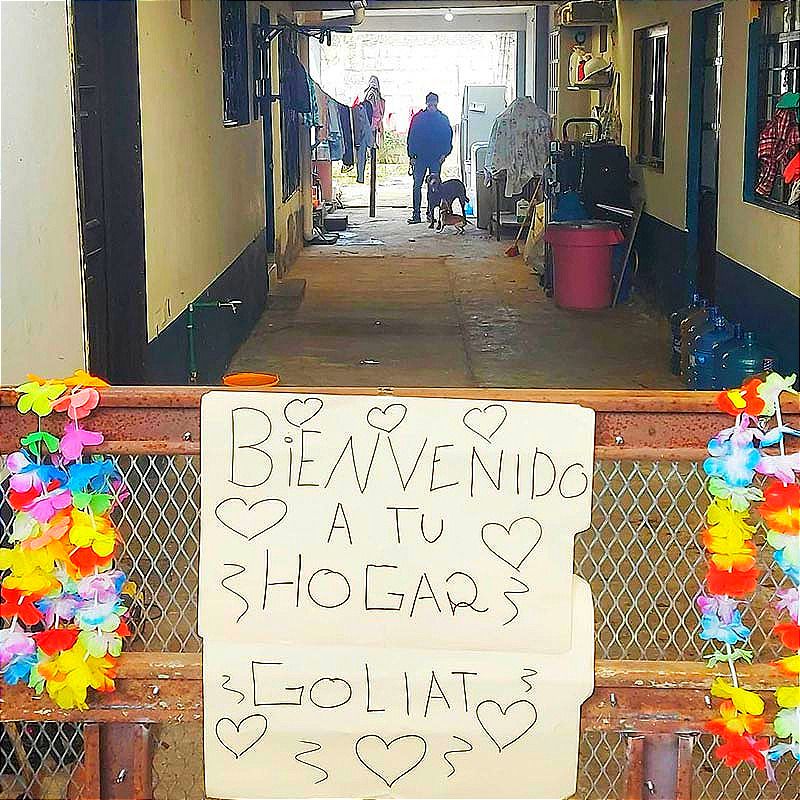 BiENVENIDO
A TU
HOGAR
GOLIAT